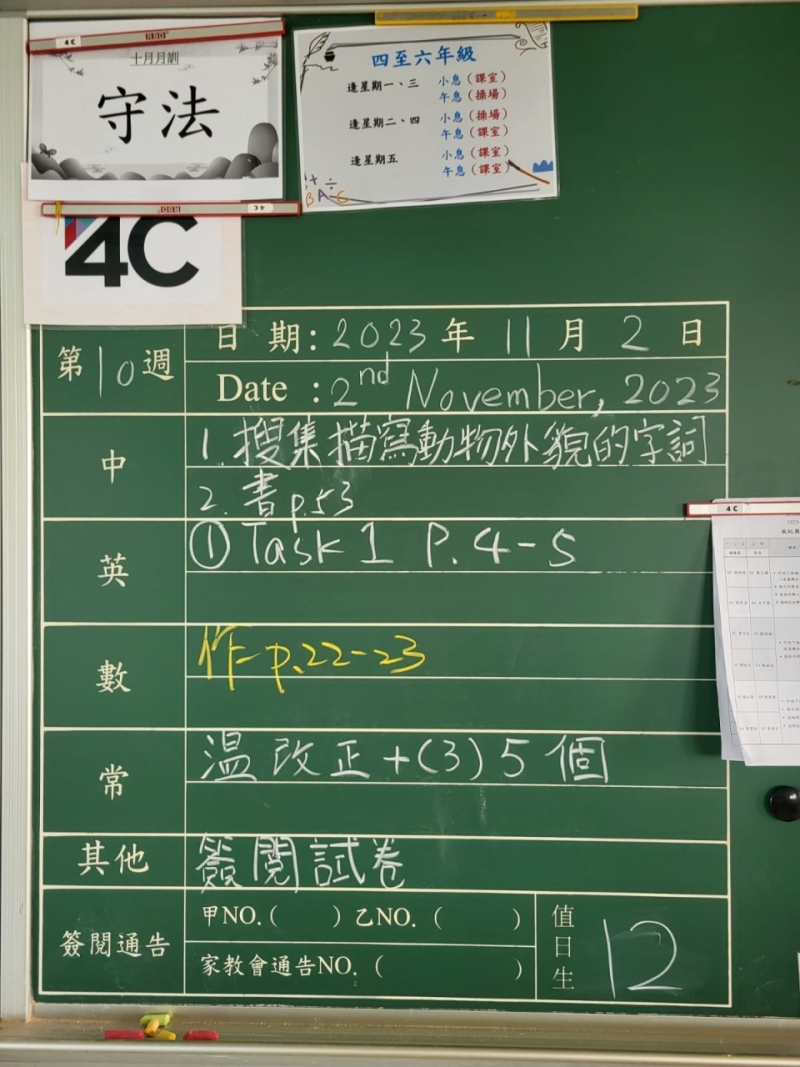 十月月訓
守法
四至六年級
逢星期一、三 小息(課室)
午息(操場)
逢星期二、四 小息(操場)
午息(課室)
逢星期五 小息(課室)
午息(課室)
4C
4C
4C
第10週
日 期:2023年 11月 2日
Date :2nd November, 2023
中
1. 搜集描寫動物外貌的字詞
2. 書p.53
英
① Task 1 P.4-5
數
作-p.22-23
常
温改正+(3)5個
其他
簽閱試卷
簽閱通告
甲NO.( )乙NO.( )
家教會通告NO.( )
值日生
12
4C